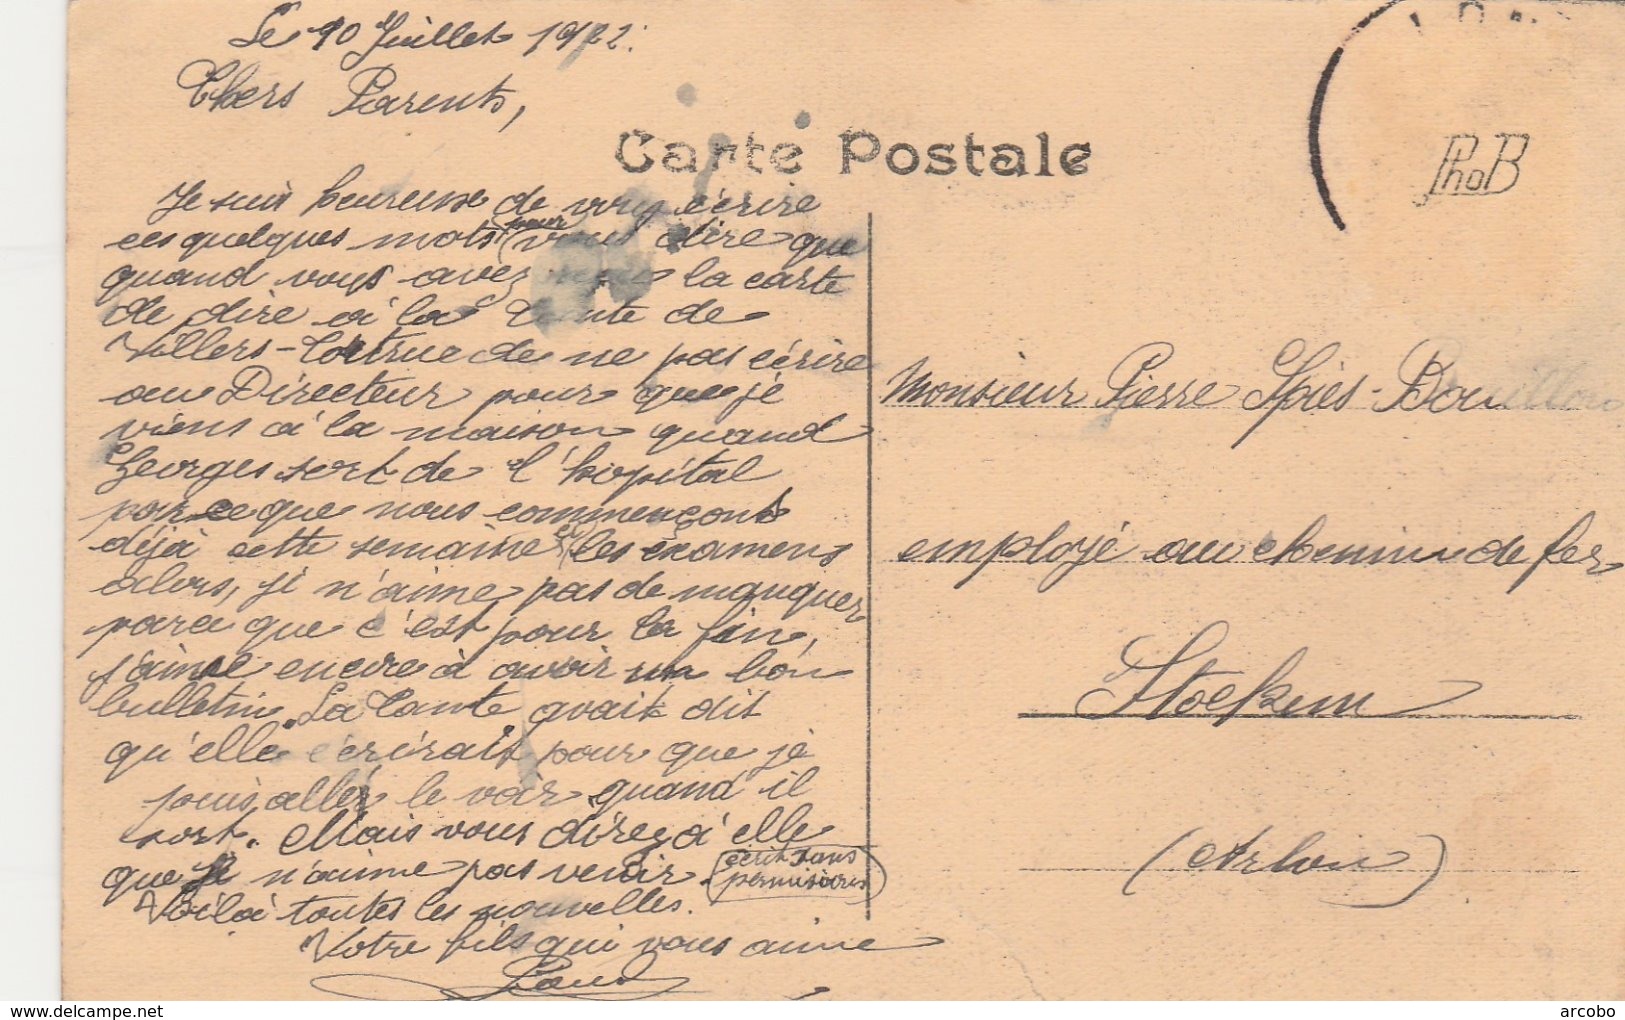 Le 10 Juillet 1922.
Chers Parents,
Carte Postale
PhoB
Je suis heureuse de vous écrire
ces quelques mots (pour) vous dire que
quand vous avez la carte
de dire à la Tante de
Villers- de ne pas écrire
au Directeur pour que je
viens à la maison quand
Georges sort de l'hopital
parce que nous commençons
déjà cette semaine les examens
alors, je n'aime pas de manquer
parce que c'est pour la fin,
j'aime encire à avoir un bon
bulletin. La Tante avait dit
qu'elle écrirait pour que je
puis aller le voir quand il
sort. Mais vous direz à elle
que je n'aime pas venir. (écrit sans
permissions)
Voilà toutes les nouvelles.
Votre fils qui vous aime
Paul
Monsieur Pierre Spies-Bouillon
employé au chemin de fer
Stockem
(Arlon)
delcampe.net
arcobo